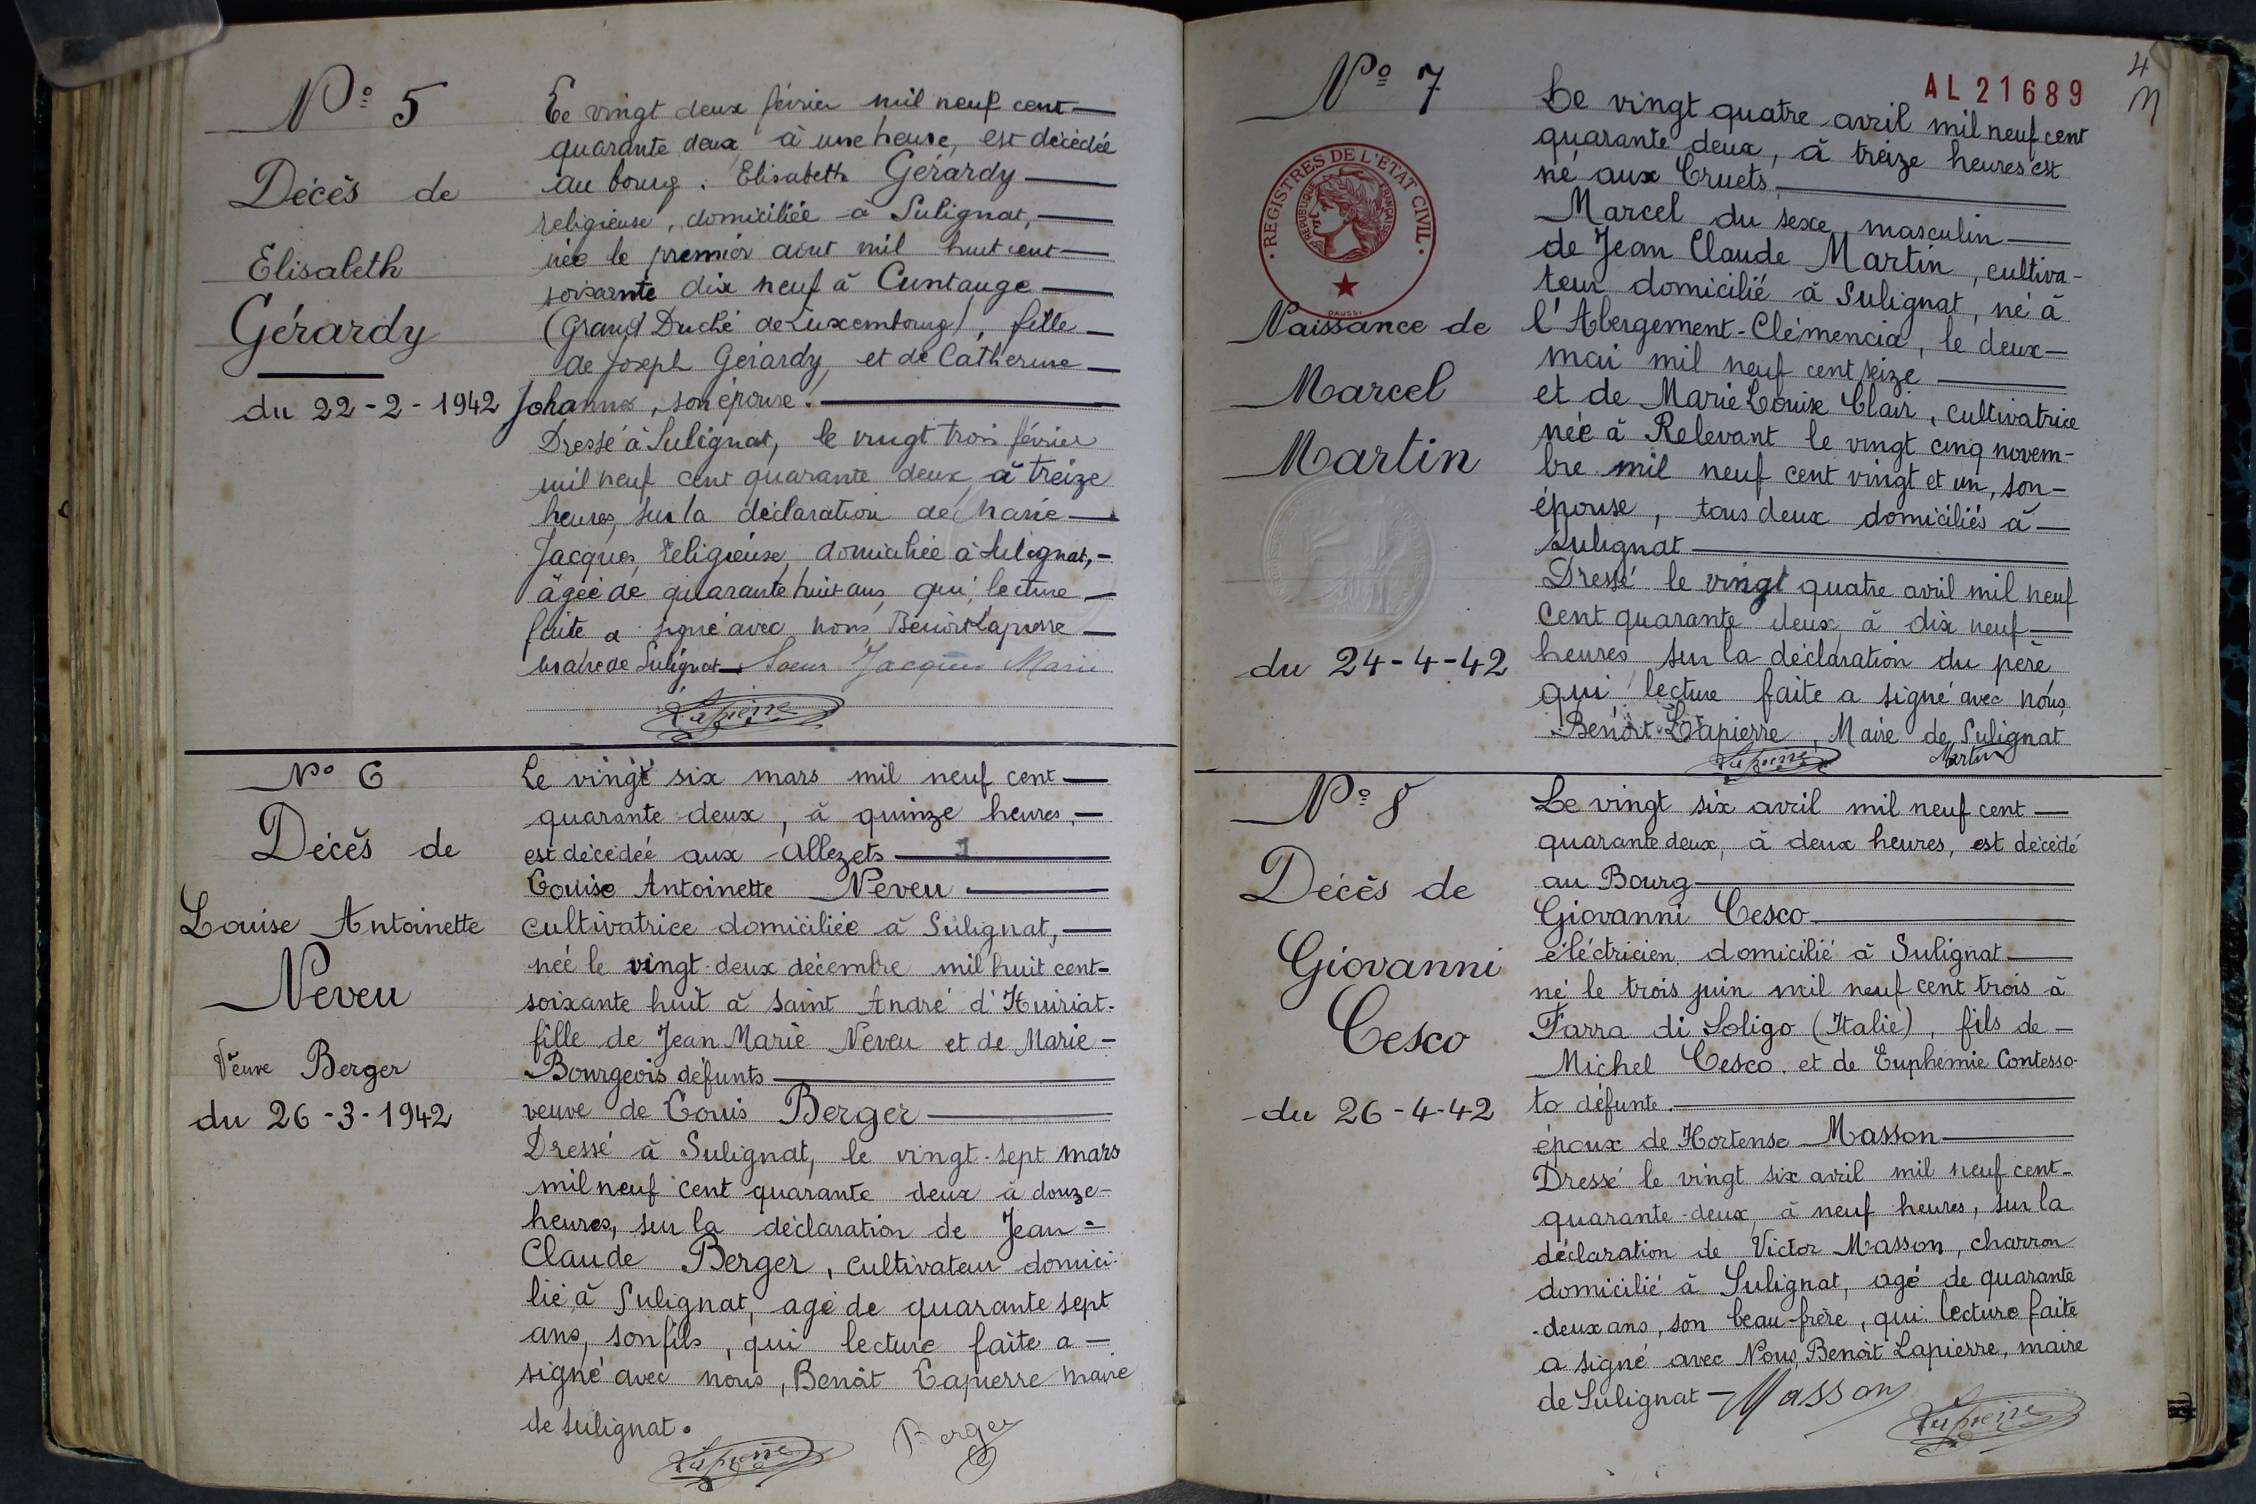 Nº 5
Décès de
Elisabeth
Gérardy
du 22-2-1942
Le vingt deux février mil neuf cent
quarante deux, à une heure, est décédée
au bourg. Elisabeth Gérardy
religieuse, domiciliée à Sulignat,
née le premier aout mil huit cent
soixante dix neuf à Cuntange
(Grand Duché de Luxembourg), fille
de Joseph Gérardy, et de Catherine
Johanns, son épouse.
Dressé à Sulignat, le vingt trois février
mil neuf cent quarante deux, à treize
heures, sur la déclaration de Marie
Jacques, Religieuse, domiciliée à Sulignat,
âgée de quarante huit ans, qui, lecture
faite a signé avec nous, Benoît Lapierre
maire de Sulignat Soeur Jacques Marie
Lapierre
Nº 6
Décès de
Louise Antoinette
Neveu
Veuve Berger
du 26-3-1942
Le vingt six mars mil neuf cent
quarante deux, à quinze heures,
est décédée aux Allezets
Louise Antoinette Neveu
cultivatrice domiciliée à Sulignat,
née le vingt-deux décembre mil huit cent-
soixante huit à Saint André d'Huiriat-
fille de Jean Marie Neveu et de Marie-
Bourgeois défunts
veuve de Louis Berger
Dressé à Sulignat, le vingt-sept mars
mil neuf cent quarante deux à douze-
heures, sur la déclaration de Jean-
Claude Berger, cultivateur domici-
lié à Sulignat, agé de quarante sept
ans, son fils, qui lecture faite a
signé avec nous, Benoît Lapierre maire
de Sulignat.
Lapierre Berger
4
AL 21689
Nº 7
REGISTRES DE L'ETAT CIVIL
REPUBLIQUE FRANÇAISE
DAUSSI
Naissance de
Marcel
Martin
du 24-4-42
Le vingt quatre avril mil neuf cent
quarante deux, à treize heures est
né aux Cruets
Marcel du sexe masculin
de Jean Claude Martin, cultiva-
teur domicilié à Sulignat, né à
l'Abergement-Clémencia, le deux
mai mil neuf cent seize
et de Marie Louise Clair, cultivatrice
née à Relevant le vingt cinq novem-
bre mil neuf cent vingt et un, son-
épouse, tous deux domiciliés à
Sulignat
Dressé le vingt quatre avril mil neuf
cent quarante deux à dix neuf
heures sur la déclaration du père
qui, lecture faite a signé avec nous,
Benoît Lapierre, Maire de Sulignat
Lapierre Martin
Nº 8
Décès de
Giovanni
Cesco
du 26-4-42
Le vingt six avril mil neuf cent
quarante deux, à deux heures, est décédé
au Bourg
Giovanni Cesco
éléctricien, domicilié à Sulignat
né le trois juin mil neuf cent trois à
Farra di Soligo (Italie), fils de
Michel Cesco, et de Euphémie Contesso-
to défunte.
époux de Hortense Masson
Dressé le vingt six avril mil neuf cent-
quarante-deux, à neuf heures, sur la
déclaration de Victor Masson, charron
domicilié à Sulignat, agé de quarante
-deux ans, son beau-frère, qui lecture faite
a signé avec Nous, Benoît Lapierre, maire
de Sulignat - Masson
Lapierre